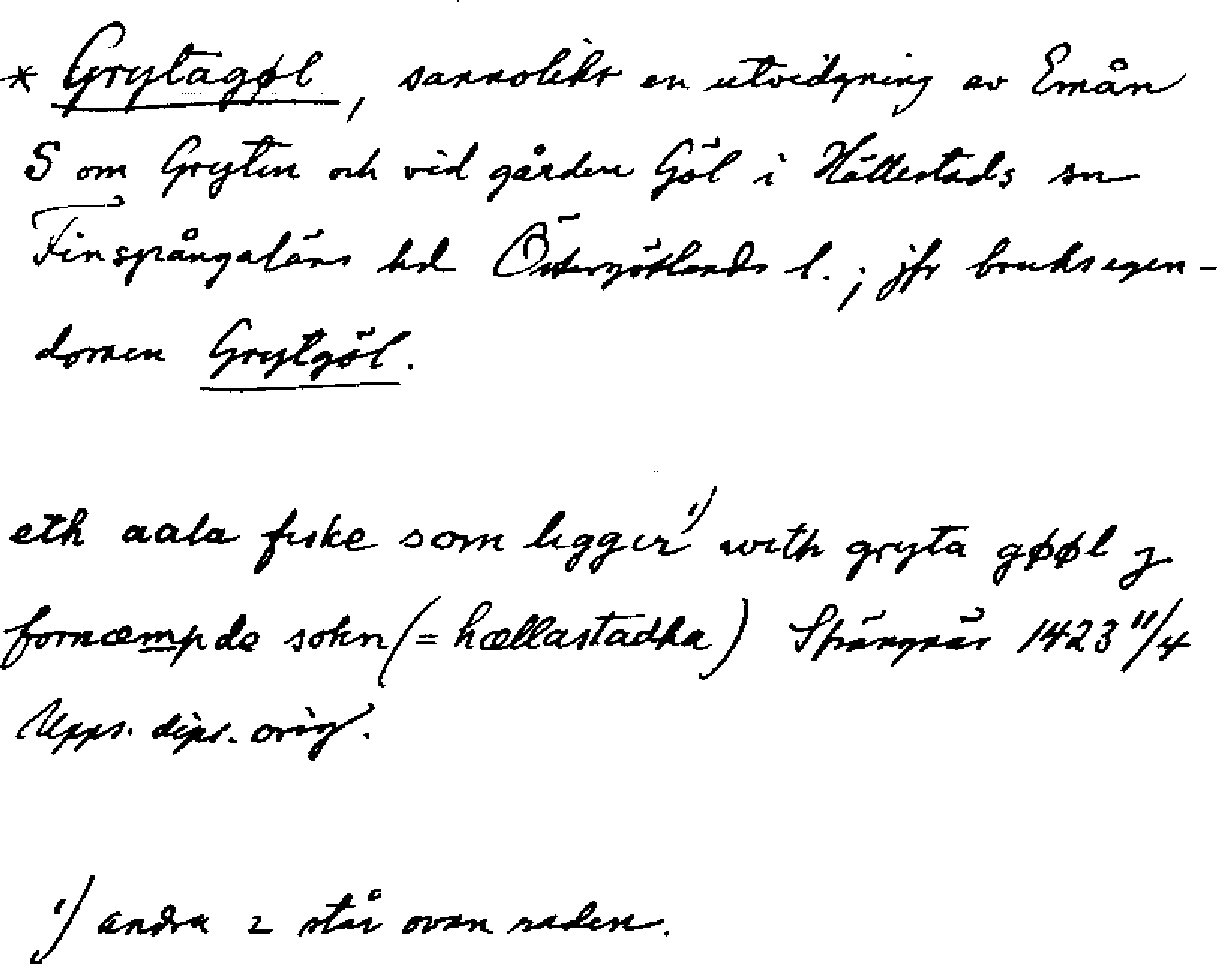 * Grytagøl, sannolikt en utvidgning av Emån
S om Gryten och vid gården Göl i Hällestads sn
Finspångaläns hd Östergötlands l.; jfr bruksegen-
domen Grytgöl.
eth aala fiske som ligger¹⁾ with gryta gøøl j
fornæmpda sokn (= hællastadha) Strängnäs 1423 11/4
Upps. dipl. orig.
¹⁾ andra r står ovan raden.